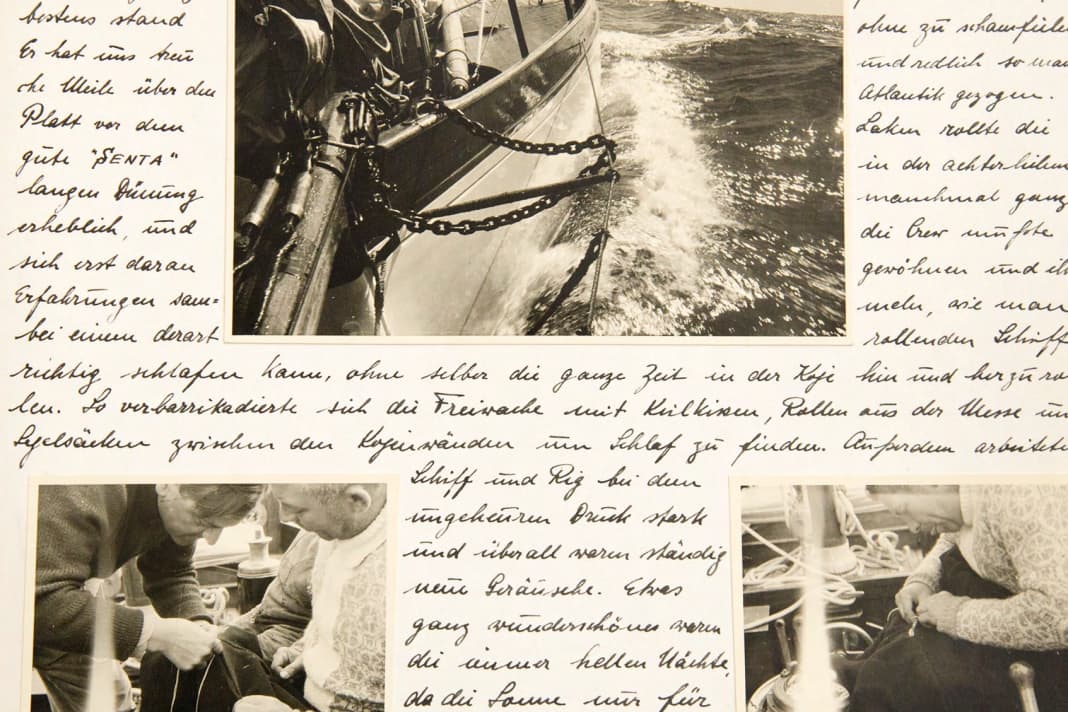 bestens stand ohne zu
Er hat uns treu und redlich so
che Meile über den Atlantik gezogen.
Platt vor dem Laken rollte die
gute "SENTA" in der
langen Dünung manchmal ganz
erheblich, und die Crew mußte
sich erst daran gewöhnen und
Erfahrungen sam= meln, wie man
bei einem derart rollenden Schiff
richtig schlafen kann, ohne selber die ganze Zeit in der Koje hin und her zu
len. So verbarrikadierte sich die Freiwache mit Keilkissen, Rollen aus der Messe
Segelsäcken zwischen den Kojenwänden um Schlaf zu finden. Außerdem
Schiff und Rig bei dem
ungeheuren Druck stark
und überall waren ständig
neue Geräusche. Etwas
ganz wunderschönes waren
die immer hellen Nächte,
da die Sonne nur für